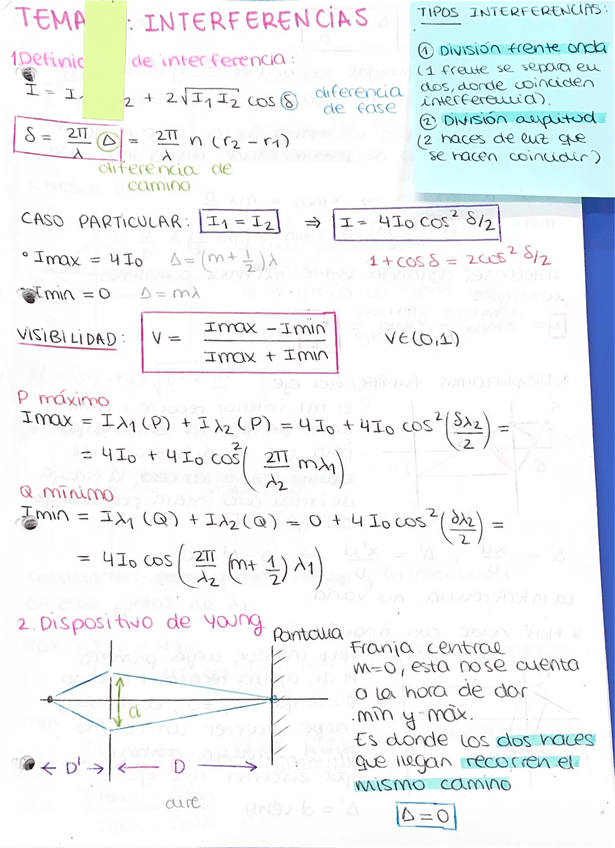 TEMA : INTERFERENCIAS
TIPOS INTERFERENCIAS:
① División frente onda
(1 frente se separa en
dos, donde coinciden
interferencia).
② División amplitud
(2 haces de luz que
se hacen coincidir)
1 Definic de interferencia:
I = I 2 + 2√I1 I2 cos δ diferencia
de fase
δ = 2π/λ Δ = 2π/λ n (r2 - r1)
diferencia de
camino
CASO PARTICULAR: I1 = I2 ⇒ I = 4I0 cos² δ/2
° Imax = 4I0 Δ = (m + 1/2)λ 1 + cos δ = 2cos² δ/2
Imin = 0 Δ = mλ
VISIBILIDAD: V = Imax - Imin / Imax + Imin V∈(0,1)
P máximo
Imax = Iλ1(P) + Iλ2(P) = 4I0 + 4I0 cos²(δλ2/2) =
= 4I0 + 4I0 cos²(2π/λ2 mλ1)
Q mínimo
Imin = Iλ1(Q) + Iλ2(Q) = 0 + 4I0 cos²(δλ2/2) =
= 4I0 cos(2π/λ2 (m + 1/2) λ1)
2. Dispositivo de Young
Pantalla
a
← D' → ← D →
aire
Franja central
m=0, esta no se cuenta
a la hora de dar
mín y máx.
Es donde los dos haces
que llegan recorren el
mismo camino
Δ = 0